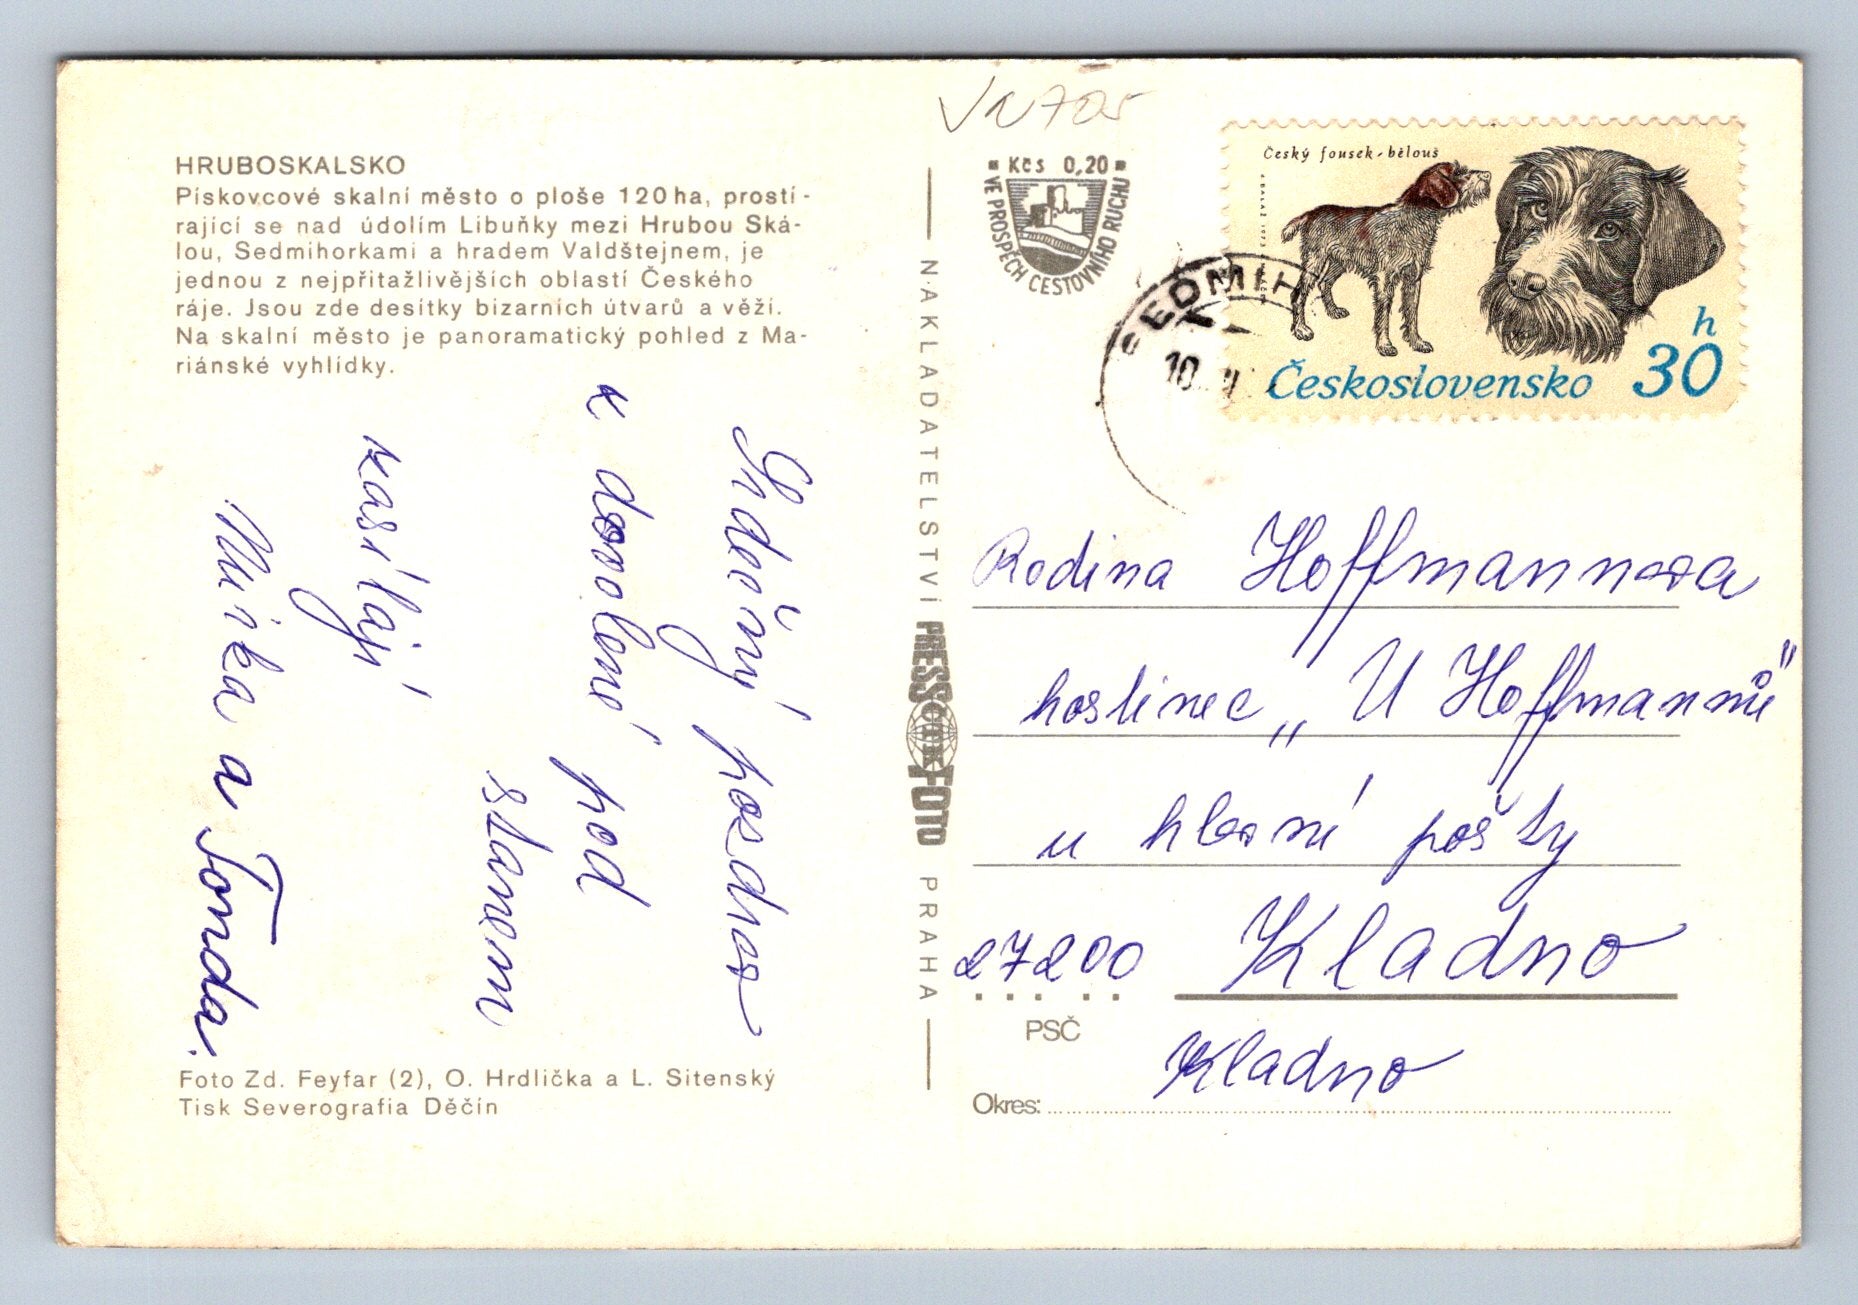 HRUBOSKALSKO
Pískovcové skalní město o ploše 120 ha, prostí-
rající se nad údolím Libuňky mezi Hrubou Ská-
lou, Sedmihorkami a hradem Valdštejnem, je
jednou z nejpřitažlivějších oblastí Českého
ráje. Jsou zde desítky bizarních útvarů a věží.
Na skalní město je panoramatický pohled z Ma-
riánské vyhlídky.
Srdečný pozdrav
z dovolené pod
stanem
zasílají
Mirka a Tonda.
Foto Zd. Feyfar (2), O. Hrdlička a L. Sitenský
Tisk Severografia Děčín
NAKLADATELSTVÍ PRESSFOTO PRAHA
Kčs 0,20
VE PROSPĚCH CESTOVNÍHO RUCHU
SEDMIH
10
Český fousek-bělouš
Československo
h
30
Rodina Hoffmannova
hostinec „U Hoffmannů"
u hlavní pošty
27200 Kladno
PSČ
Kladno
Okres: